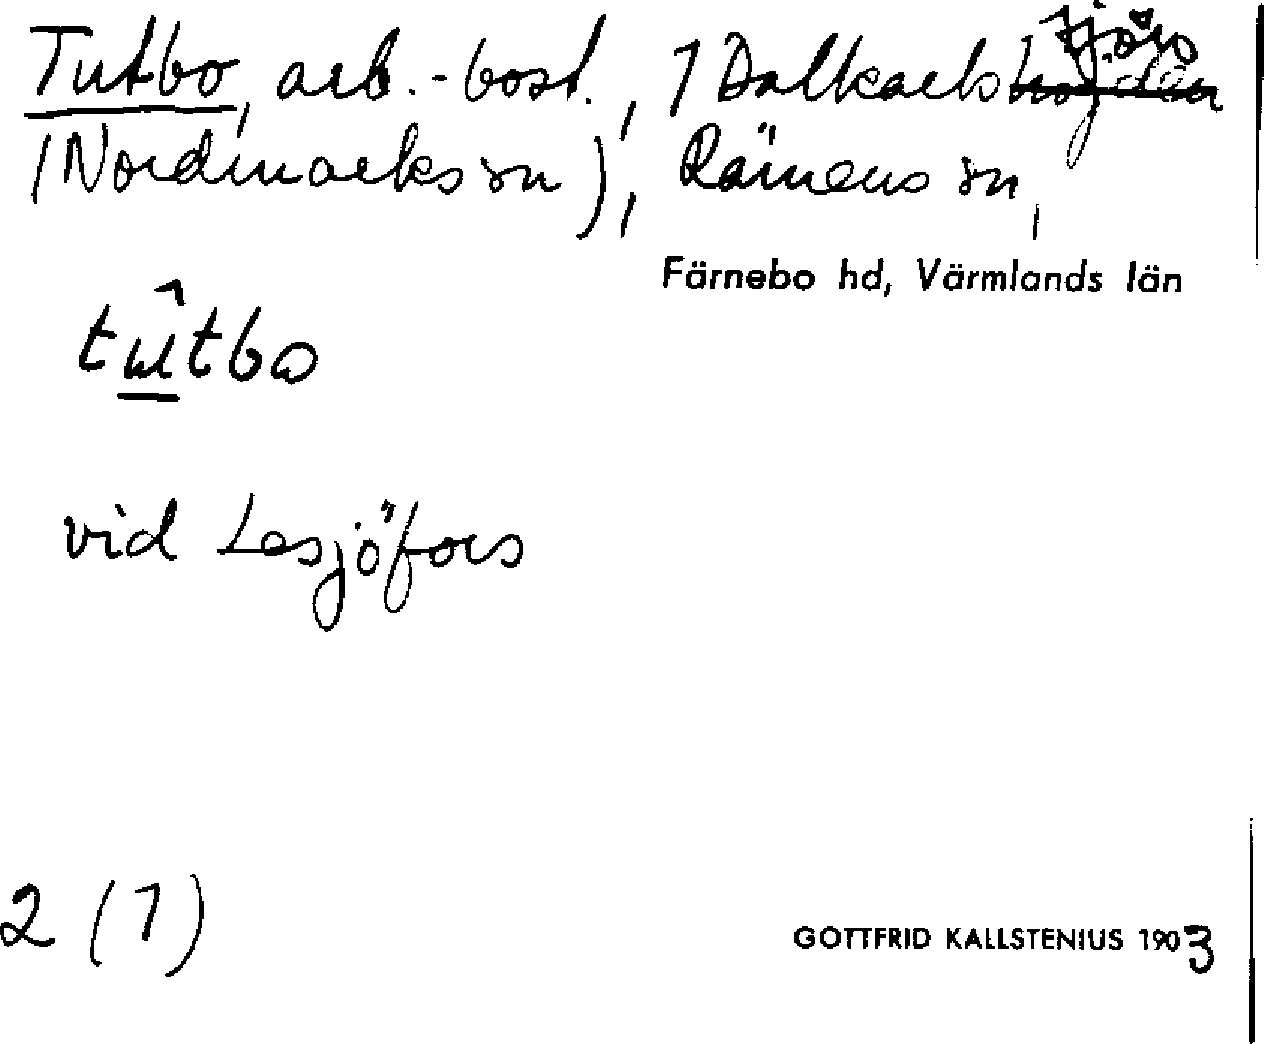 Tutbo, arb.-bost., 1 Dalkarlssjöhöjden
(Nordmarks sn), Rämens sn,
Färnebo hd, Värmlands län
tûtbo
vid Lesjöfors
2 (1)
GOTTFRID KALLSTENIUS 1903